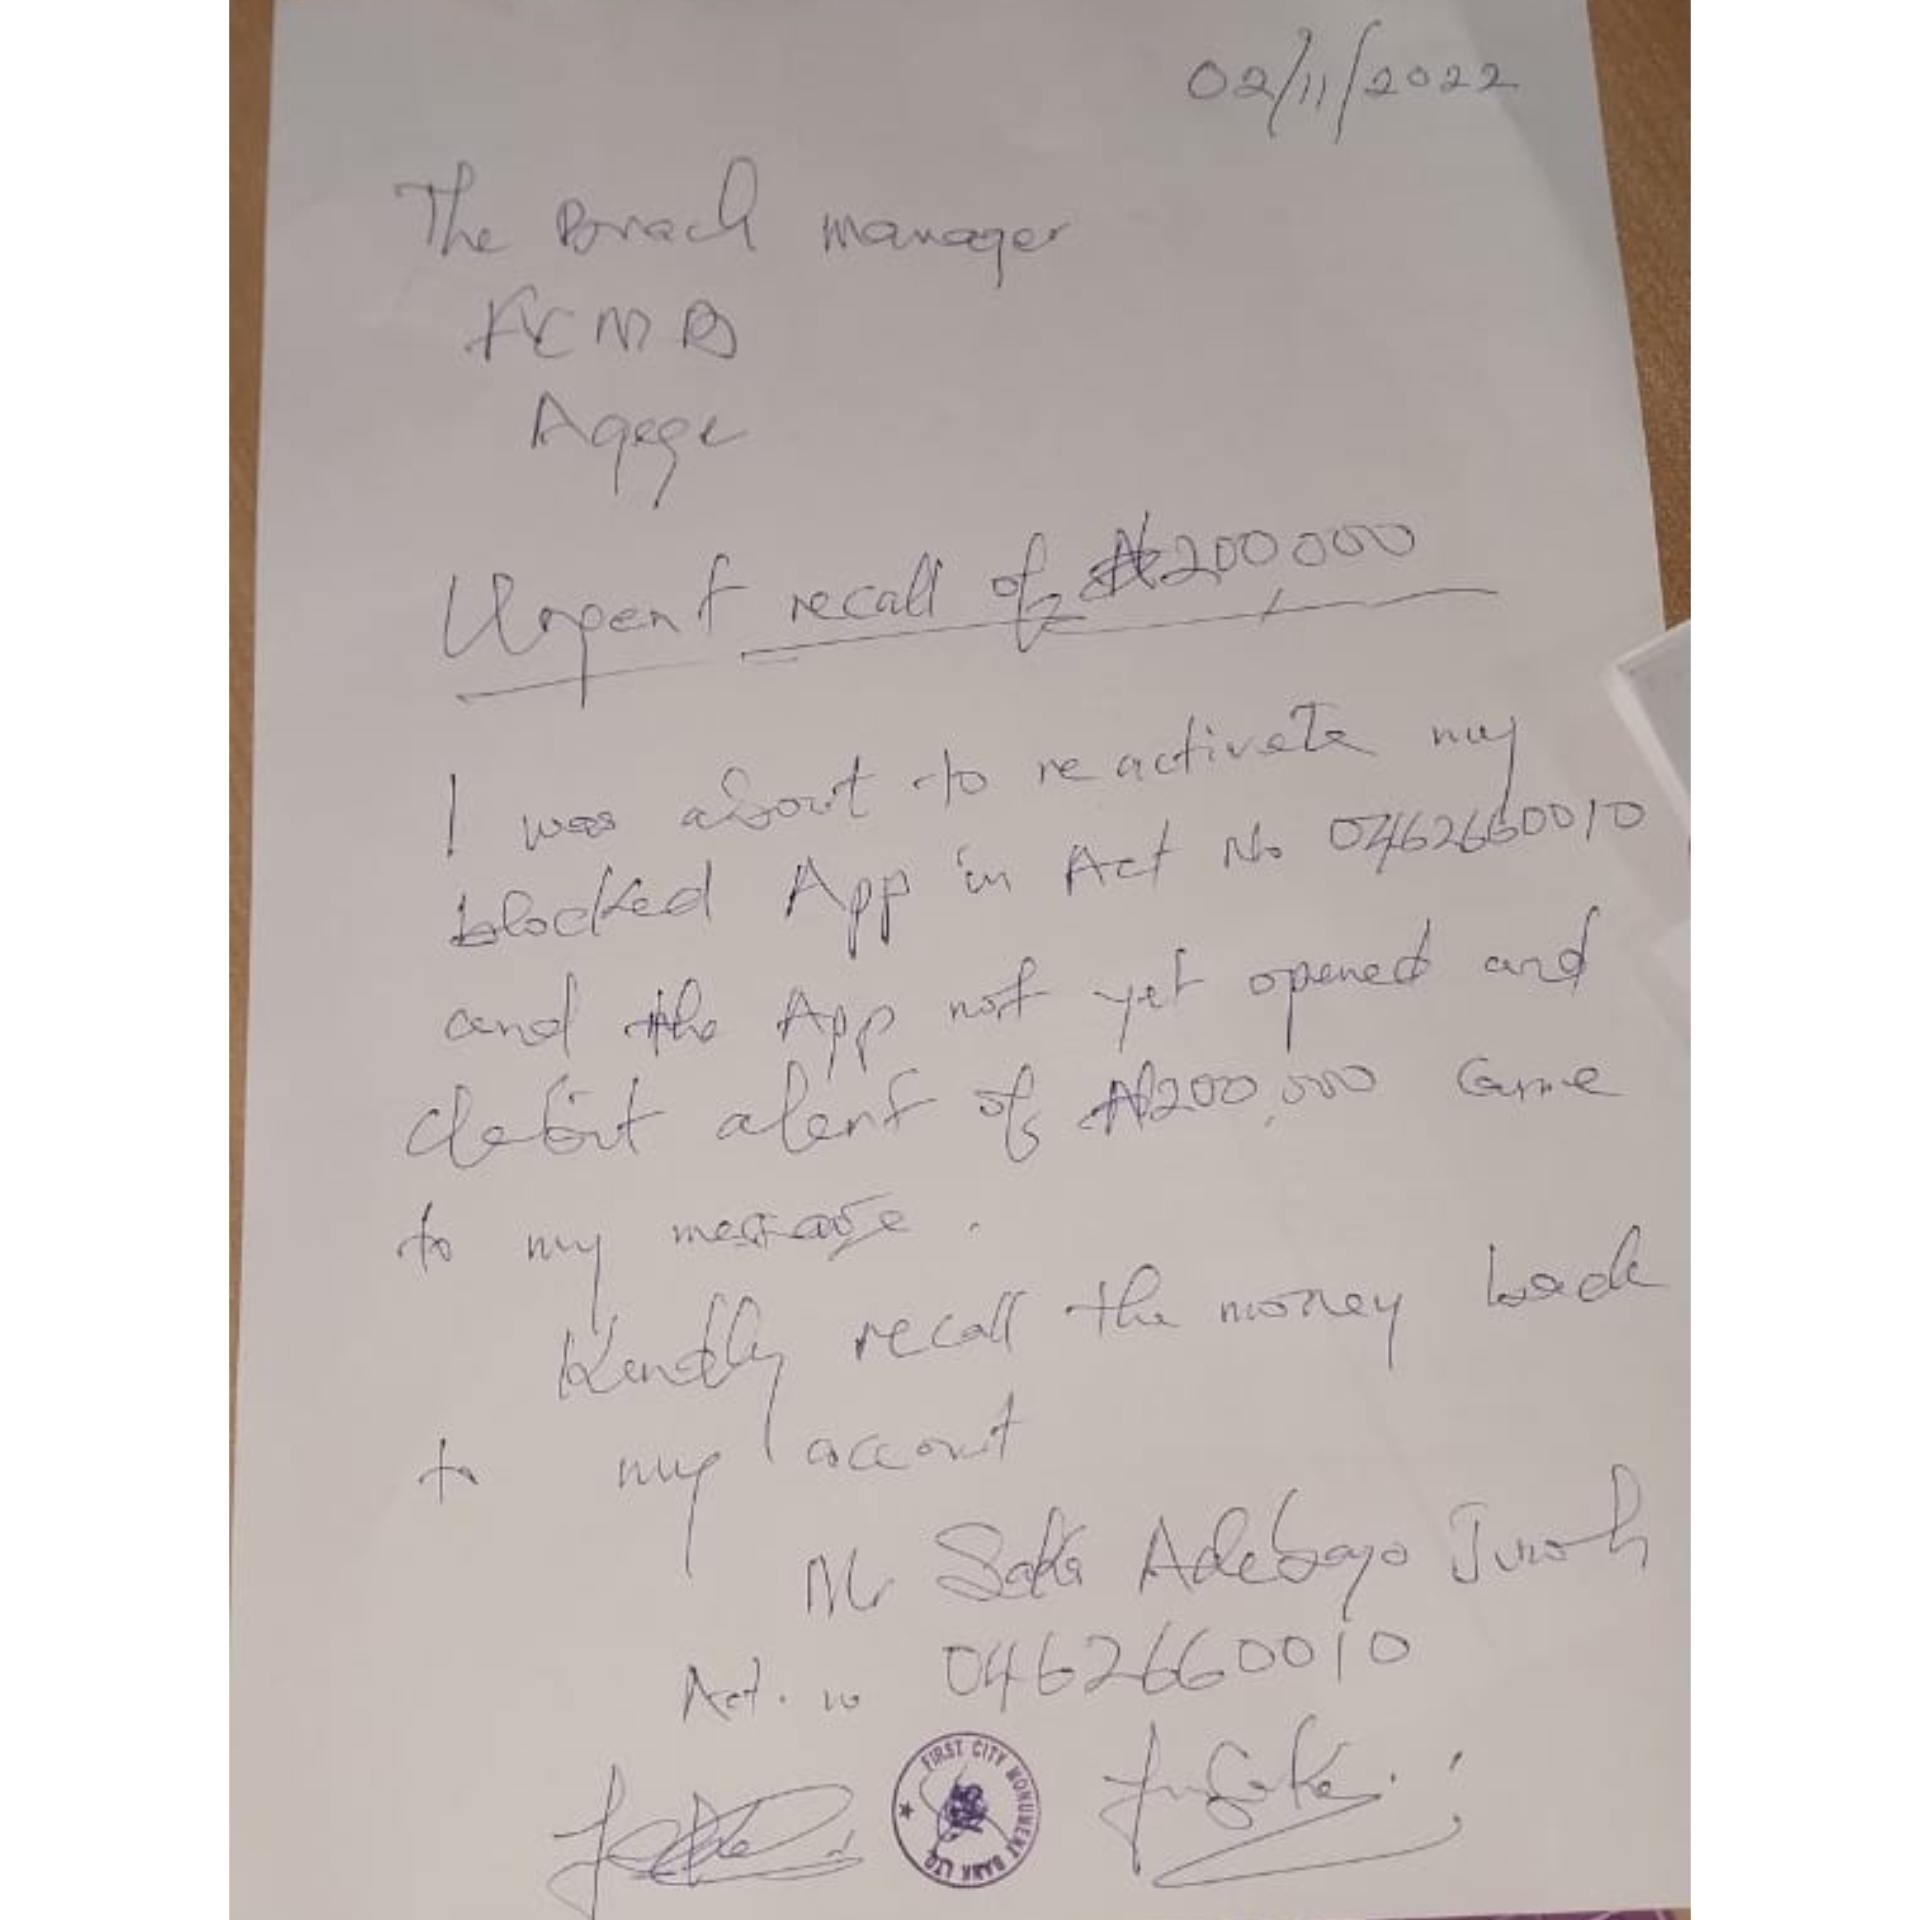 02/11/2022
The Branach manager
FCMB
Agege
Urgent recall of ₦200,000
I was about to reactivate my
blocked App in Act No 0462660010
and the App not yet opened and
debit alert of ₦200,000 came
to my message.
Kindly recall the money back
to my account
Mr Saka Adebayo
Act. no 0462660010
FIRST CITY MONUMENT BANK LTD